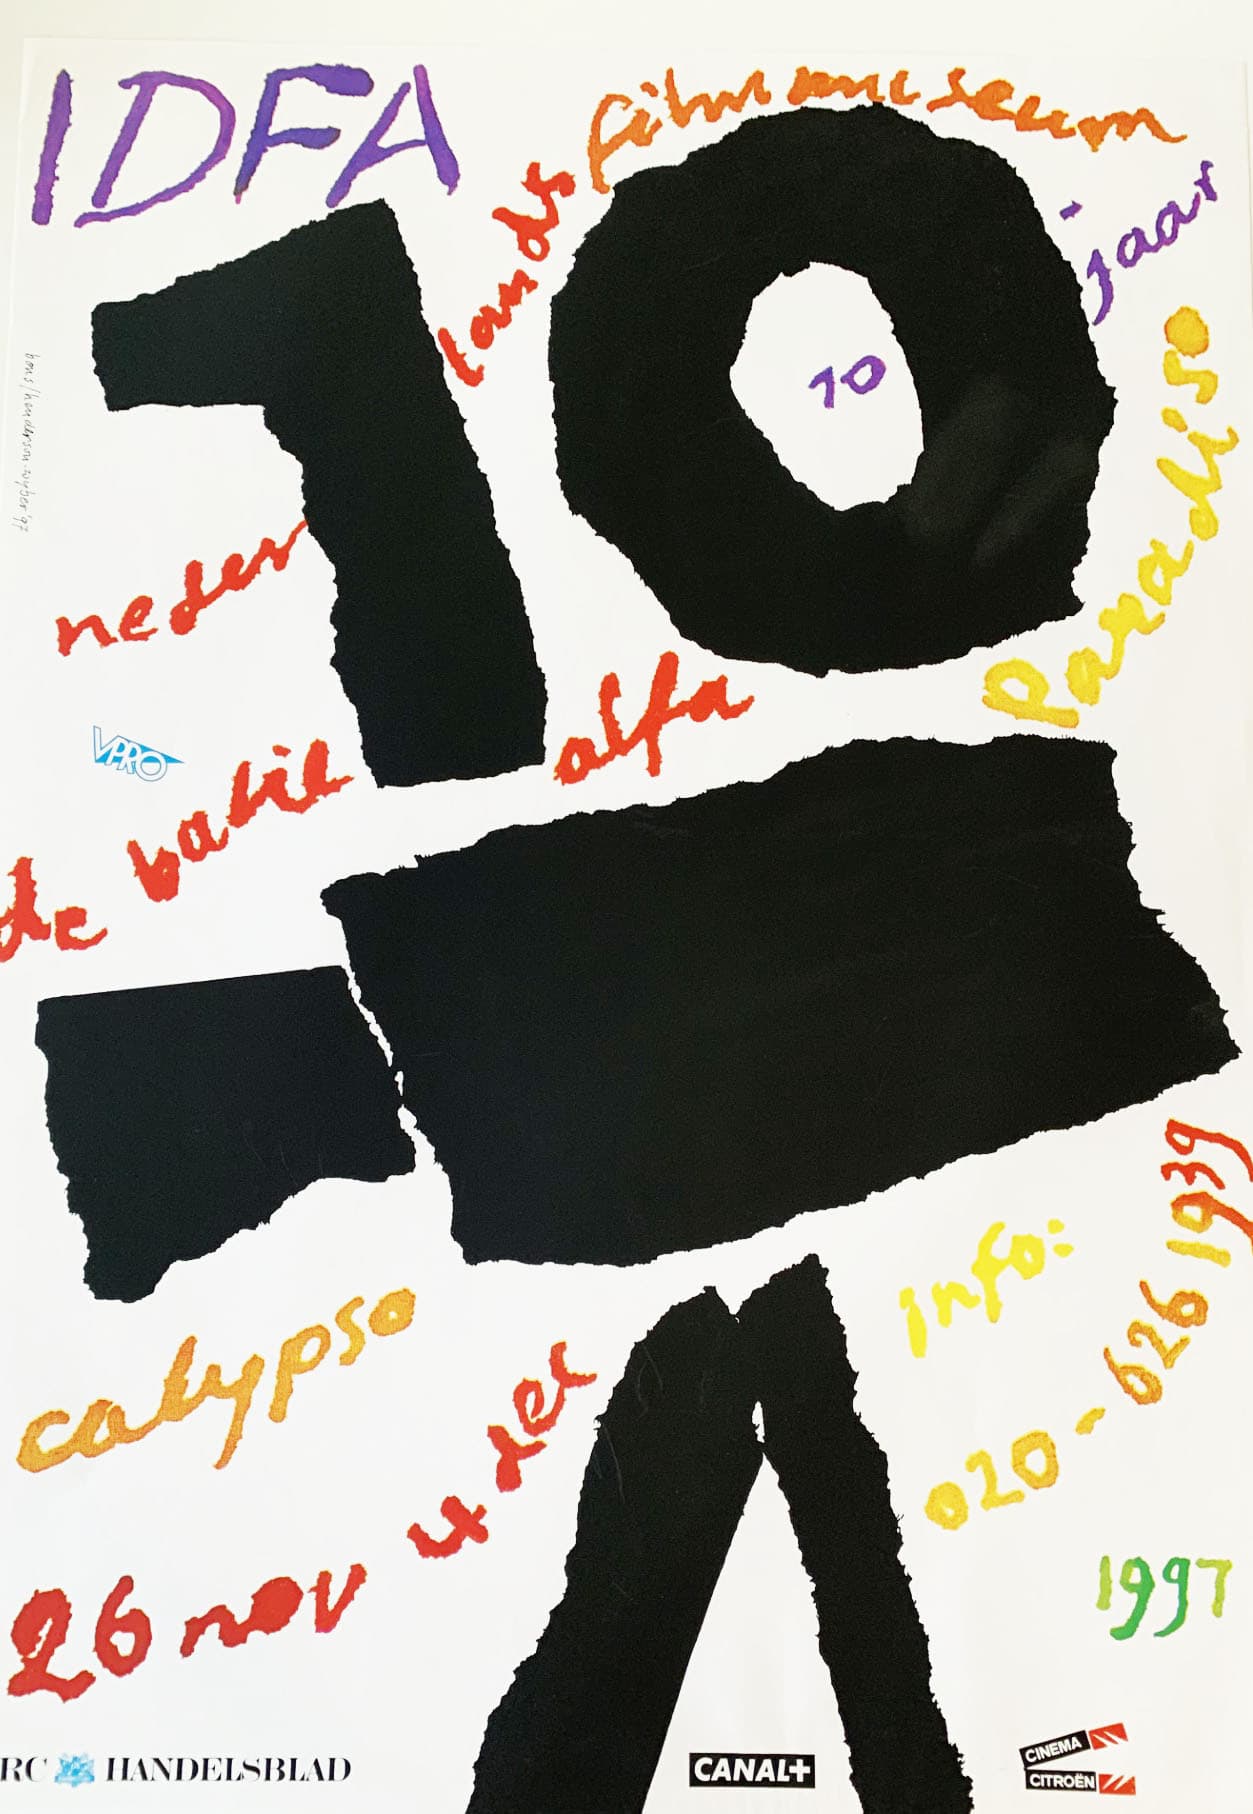 IDFA
neder lands filmmuseum
10 jaar
Paradiso
alfa
de balie
VPRO
calypso
26 nov 4 dec
info:
020-626 1939
1997
RC HANDELSBLAD
CANAL+
CINEMA
CITROËN